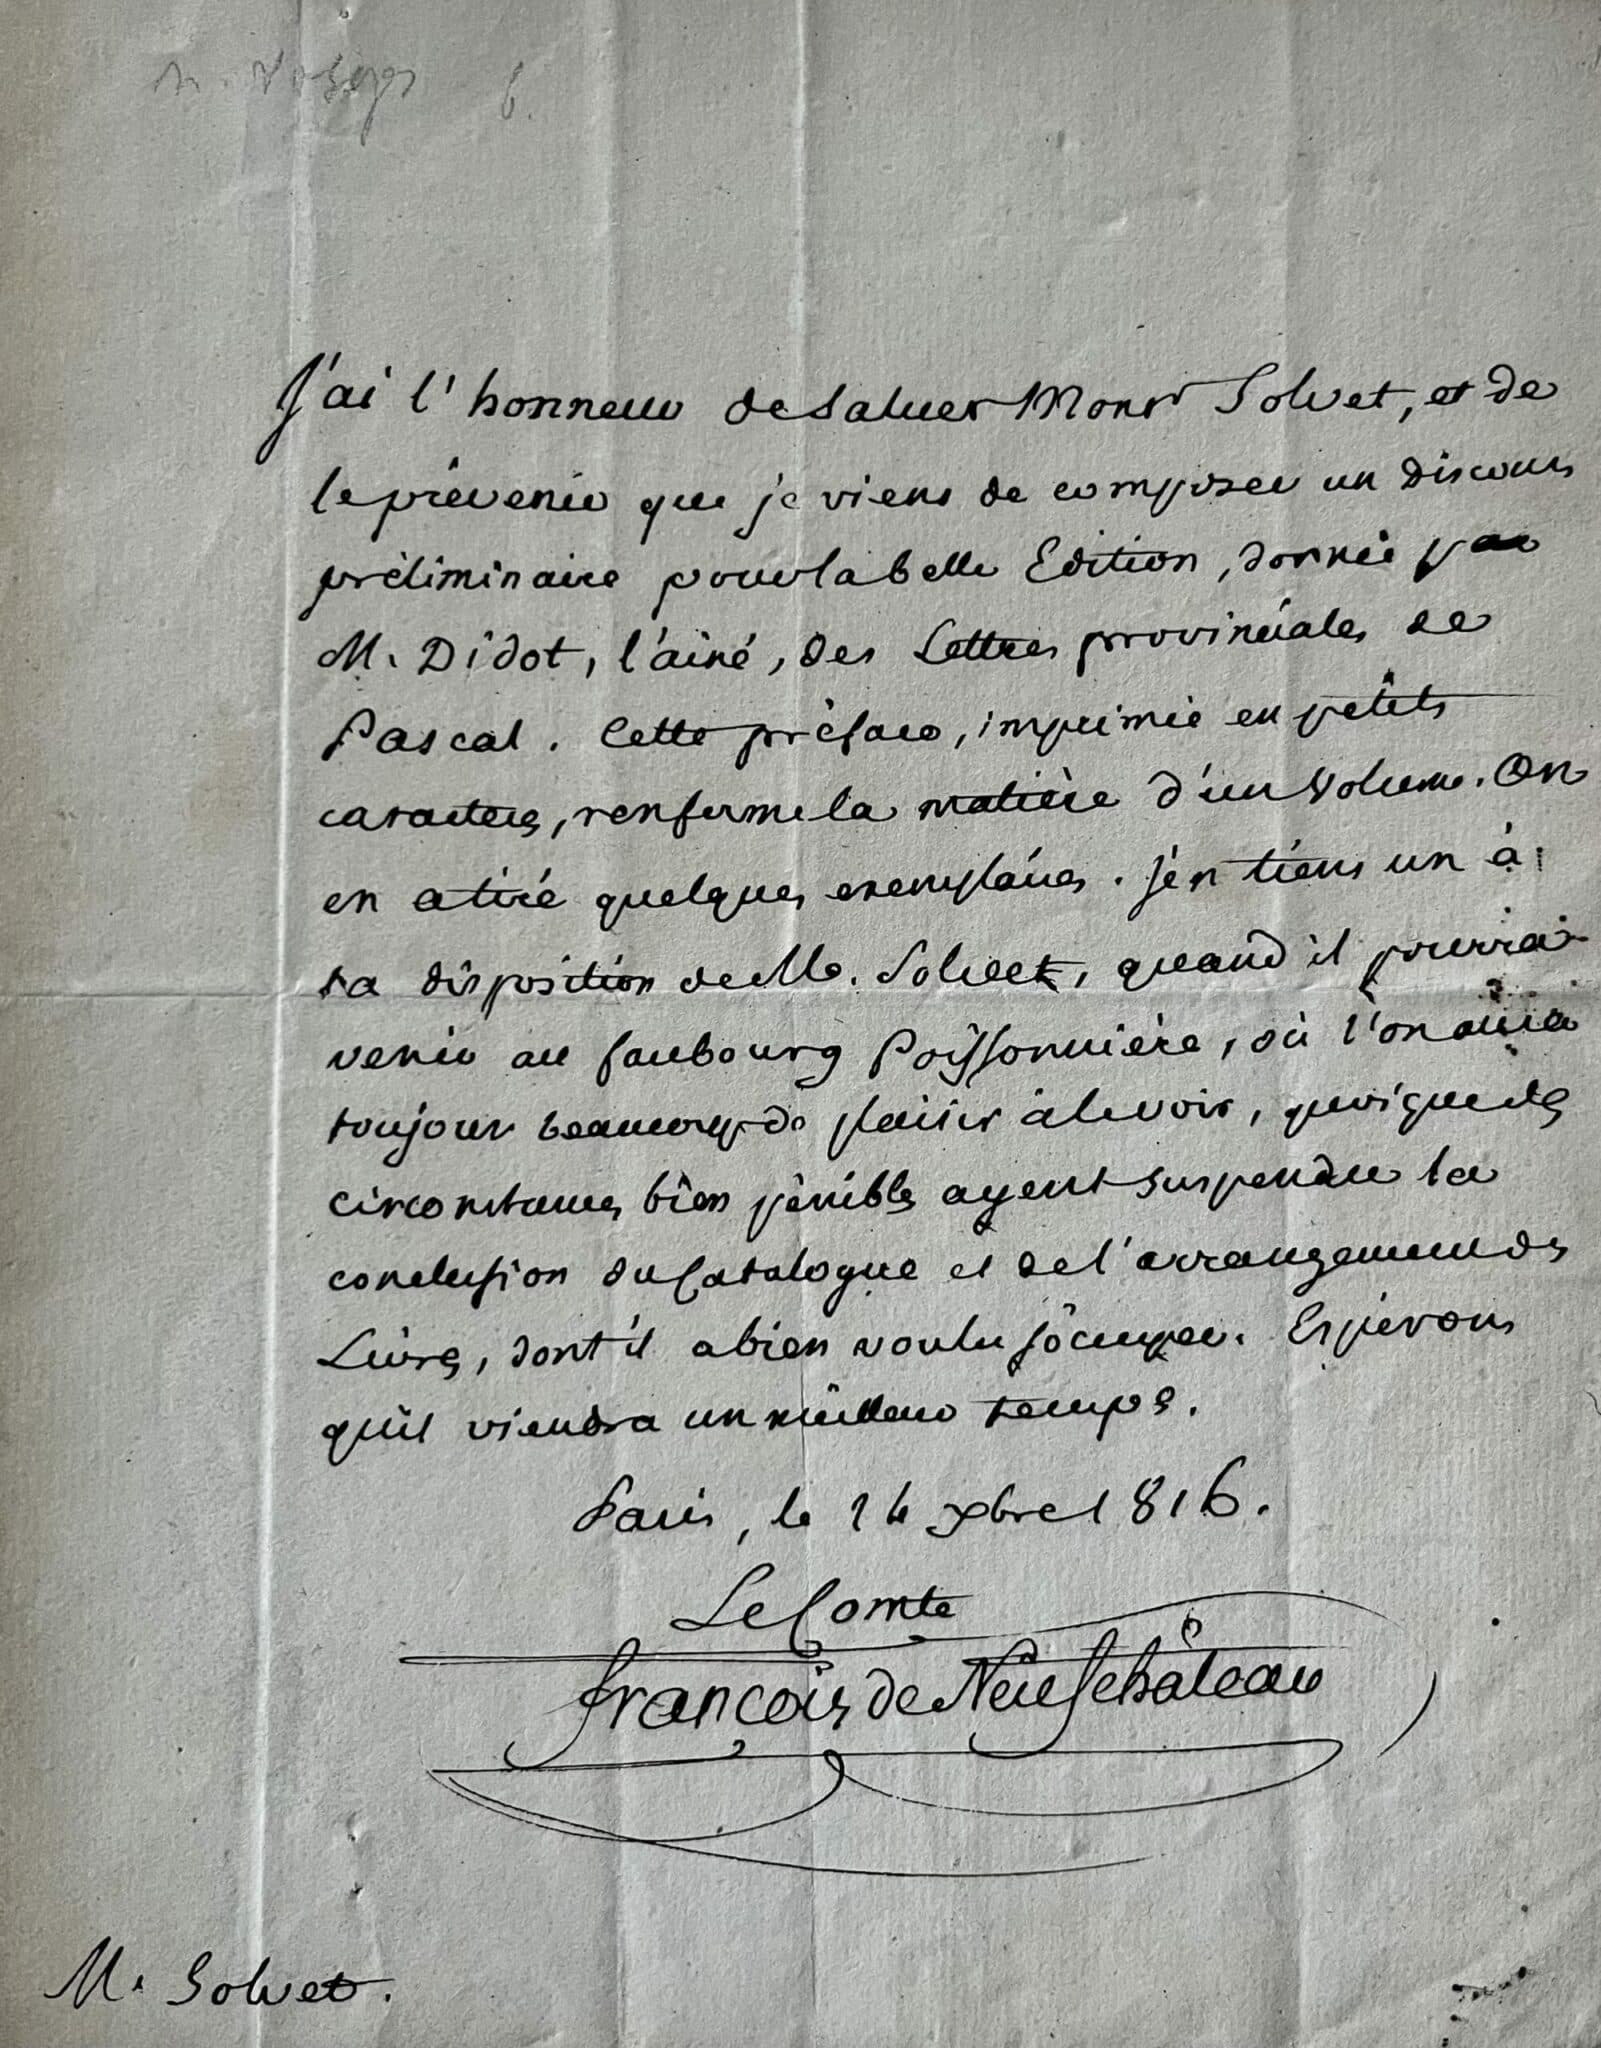 J'ai l'honneur de saluer Monsr Solvet, et de
le prévenir que je viens de composer un discours
préliminaire pour la belle Edition, donnée par
M. Didot, l'aîné, des Lettres provinciales de
Pascal. Cette préface, imprimée en petits
caracteres, renferme la matière d'un Volume. On
en a tiré quelques exemplaires. J'en tiens un à
la disposition de M. Solvet, quand il pourra
venir au faubourg Poissonnière, où l'on aura
toujours beaucoup de plaisir à le voir, quoique des
circonstances bien pénibles ayent suspendu la
conclusion du Catalogue et de l'arrangement des
Livres, dont il a bien voulu s'occuper. Espérons
qu'il viendra un meilleur temps.
Paris, le 14 Xbre 1816.
Le Comte
François de Neufchâteau
M. Solvet.